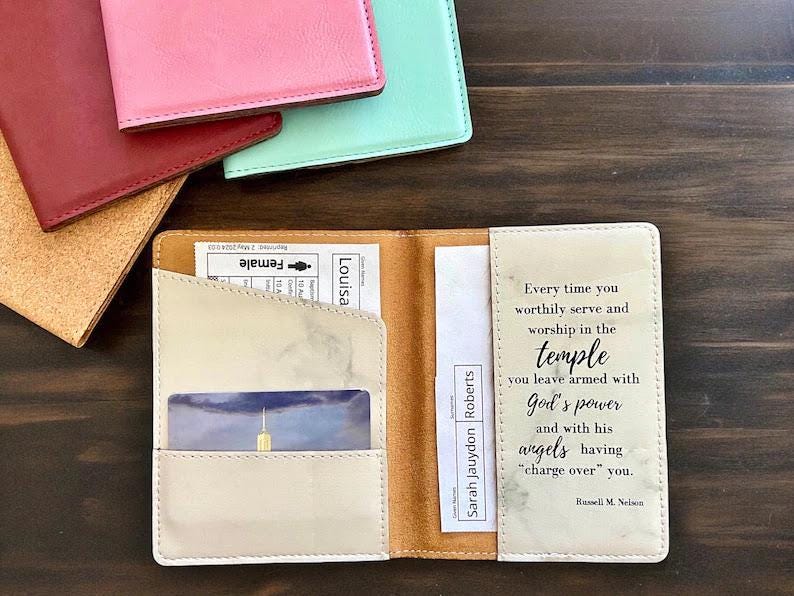 Reprinted: 2 May 2024 0:03
Female
Given Names
Louisa
Surnames
Roberts
Given Names
Sarah Jauydon
Every time you
worthily serve and
worship in the
temple
you leave armed with
God's power
and with his
angels having
“charge over” you.
Russell M. Nelson